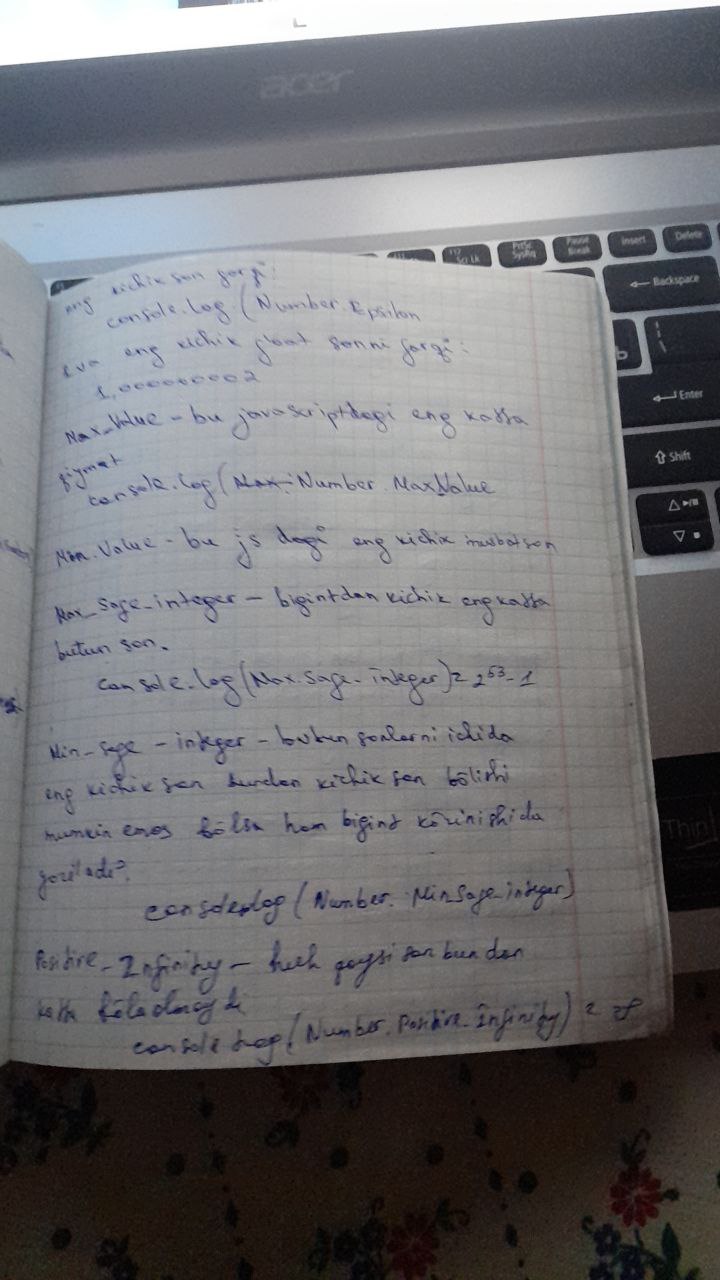 acer
PrtSc SysRq
Pause Break
Insert
Delete
Backspace
Enter
Shift
Think
eng kichik son
console.log (Number.Epsilon
1 va eng kichik sonni
1,000000002
Max_Value - bu javascriptdagi eng katta
qiymat
console.log( Number. Max_Value
Min.Value - bu js dagi eng kichik musbat son
Max_Sage_integer - bigintdan kichik eng katta
butun son.
console.log(Max.Sage-integer) = 2^53 - 1
Min_sage - integer - butun sonlarni ichida
eng kichik son bundan kichik son bõlishi
mumkin emas bõlsa ham bigint kõrinishida
console.log (Number. Min_Sage_integer)
Positive_Infinity - hech qaysi son bundan
katta bõlaolmaydi
console.log (Number. Positive_Infinity) =